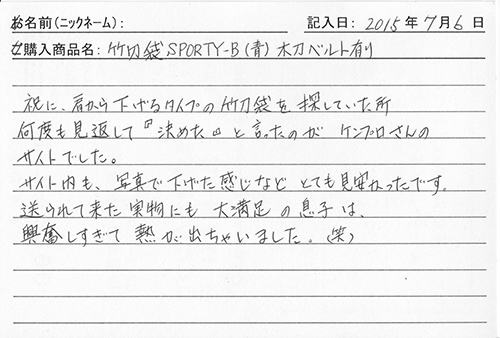 お名前(ニックネーム): 記入日: 2015年7月6日
ご購入商品名: 竹刀袋SPORTY-B(青)木刀ベルト有り
祝に、肩から下げるタイプの竹刀袋を探していた所
何度も見返して『決めた』と言ったのが ケンプロさんの
サイトでした。
サイト内も、写真で下げた感じなど とても見安かったです。
送られて来た実物にも 大満足の息子は、
興奮しすぎて 熱が出ちゃいました。(笑)